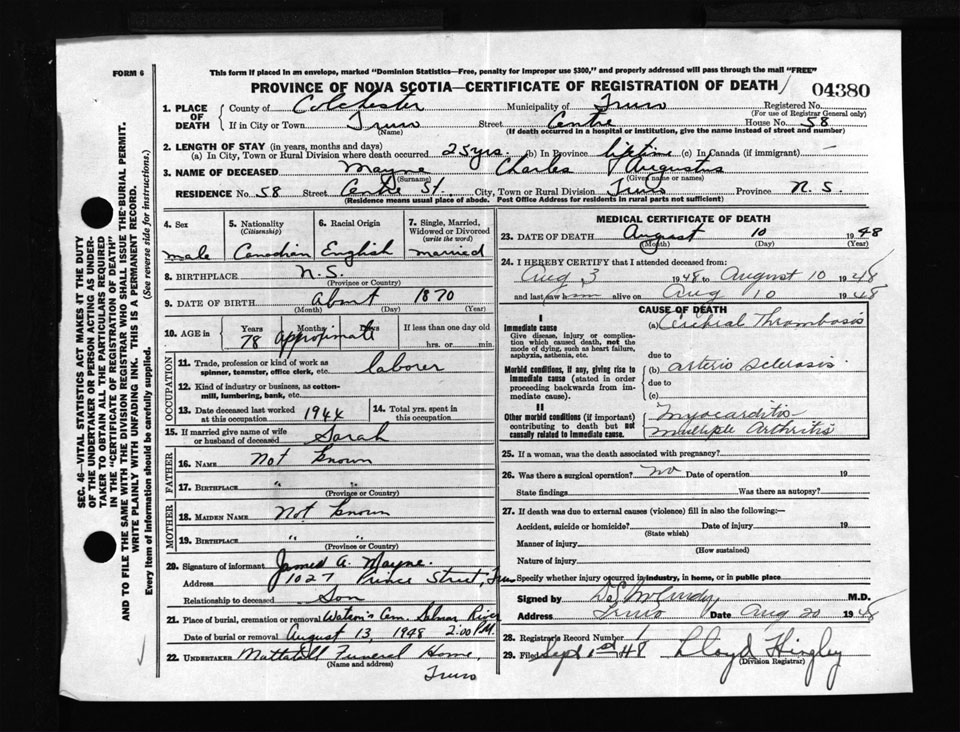 FORM 6
This form if placed in an envelope, marked "Dominion Statistics—Free, penalty for improper use $300," and properly addressed will pass through the mail "FREE"
PROVINCE OF NOVA SCOTIA—CERTIFICATE OF REGISTRATION OF DEATH
04380
1. PLACE OF DEATH
County of Colchester Municipality of Truro Registered No.
(For use of Registrar General only)
If in City or Town Truro Street Centre House No. 58
(Name) (If death occurred in a hospital or institution, give the name instead of street and number)
2. LENGTH OF STAY (in years, months and days)
(a) In City, Town or Rural Division where death occurred 25 yrs. (b) In Province lifetime (c) In Canada (if immigrant) —
3. NAME OF DECEASED Mayne Charles Augustus
(Surname) (Given name or names)
RESIDENCE No. 58 Street Centre St. City, Town or Rural Division Truro Province N.S.
(Residence means usual place of abode. Post Office Address for residents in rural parts not sufficient)
4. Sex male
5. Nationality (Citizenship) Canadian
6. Racial Origin English
7. Single, Married, Widowed or Divorced (write the word) married
8. BIRTHPLACE N.S.
(Province or Country)
9. DATE OF BIRTH about 1870
(Month) (Day) (Year)
10. AGE in Years Months Days If less than one day
78 approximate hrs. or min.
OCCUPATION
11. Trade, profession or kind of work as spinner, teamster, office clerk, etc. laborer
12. Kind of industry or business, as cotton-mill, lumbering, bank, etc.
13. Date deceased last worked at this occupation 1944
14. Total yrs. spent in this occupation
15. If married give name of wife or husband of deceased Sarah
FATHER
16. NAME Not known
17. BIRTHPLACE " "
(Province or Country)
MOTHER
18. MAIDEN NAME Not known
19. BIRTHPLACE " "
(Province or Country)
20. Signature of informant James A. Mayne.
Address 1027 Prince Street, Truro
Relationship to deceased Son
21. Place of burial, cremation or removal Watson's Cem. Salmon River
Date of burial or removal August 13, 1948 2:00 P.M.
22. UNDERTAKER Mattatall Funeral Home,
(Name and address)
Truro
MEDICAL CERTIFICATE OF DEATH
23. DATE OF DEATH August 10 1948
(Month) (Day) (Year)
24. I HEREBY CERTIFY that I attended deceased from:
Aug 3 1948 to August 10 1948
and last saw him alive on Aug 10 1948
CAUSE OF DEATH
I
Immediate cause
Give disease, injury or complication which caused death, not the mode of dying, such as heart failure, asphyxia, asthenia, etc.
(a) Cerebral Thrombosis
due to
Morbid conditions, if any, giving rise to immediate cause (stated in order proceeding backwards from immediate cause).
(b) arterio sclerosis
due to
(c)
II
Other morbid conditions (if important) contributing to death but not causally related to immediate cause.
Myocarditis
Multiple Arthritis
25. If a woman, was the death associated with pregnancy?
26. Was there a surgical operation? no Date of operation 19
State findings Was there an autopsy?
27. If death was due to external causes (violence) fill in also the following:—
Accident, suicide or homicide? Date of injury 19
(State which)
Manner of injury
(How sustained)
Nature of injury
Specify whether injury occurred in industry, in home, or in public place
Signed by M.D.
Address Truro Date Aug 20 1948
28. Registrar's Record Number
29. Filed Sept 1st 1948 Lloyd Hingley
(Division Registrar)
SEC. 46—VITAL STATISTICS ACT MAKES IT THE DUTY
OF THE UNDERTAKER OR PERSON ACTING AS UNDER-
TAKER TO OBTAIN ALL THE PARTICULARS REQUIRED
IN THE "CERTIFICATE OF REGISTRATION OF DEATH"
AND TO FILE THE SAME WITH THE DIVISION REGISTRAR WHO SHALL ISSUE THE BURIAL PERMIT.
WRITE PLAINLY WITH UNFADING INK. THIS IS A PERMANENT RECORD.
Every item of information should be carefully supplied. (See reverse side for instructions.)